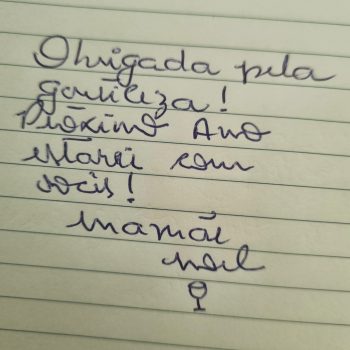 Obrigada pela
gentileza!
Próximo Ano
estarei com
vocês!
Mamãe
Noel